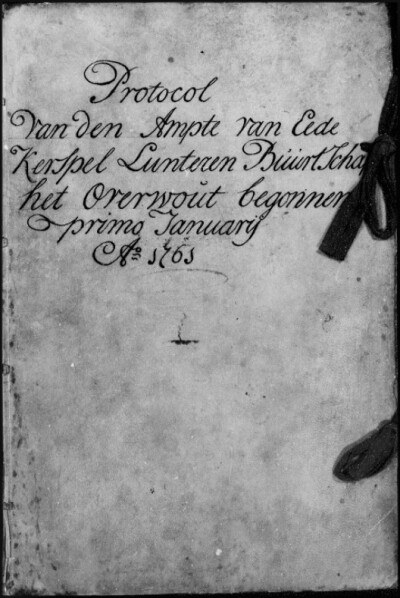 Protocol
Van den Ampte van Eede
Kerspel Lunteren Büürtscha
het Overwoŭt begonnen
primo Januarij
Aº 1761